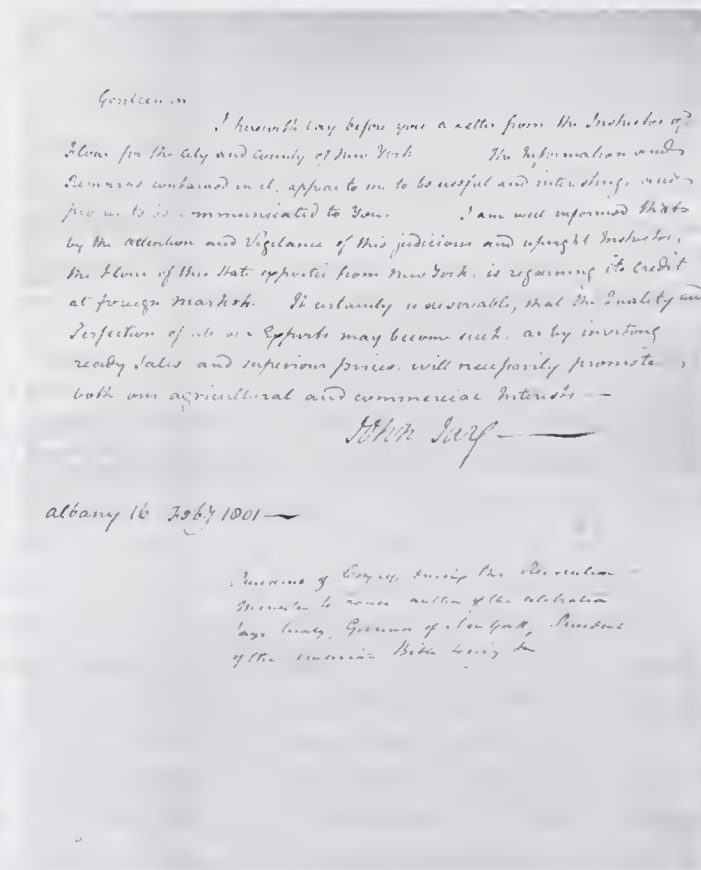 Gentlemen
I herewith lay before you a Letter from the Inspector of
Flour for the City and County of New York The Information and
Remarks contained in it, appear to me to be useful and interesting, and
proper to be communicated to You. I am well informed that
by the attention and Vigilance of this judicious and upright Inspector,
the Flour of this State exported from New York, is regaining its Credit
at foreign Markets. It certainly is desireable, that the Quality and
Perfection of all our Exports may become such, as by inviting
ready Sales and superiour prices, will necessarily promote
both our agricultural and commercial Interests —
John Jay
Albany 16 Feby 1801 —
President of Congress during the Revolution
Minister to author of the celebrated
Jays treaty, Governor of New York, President
of the American Bible Society